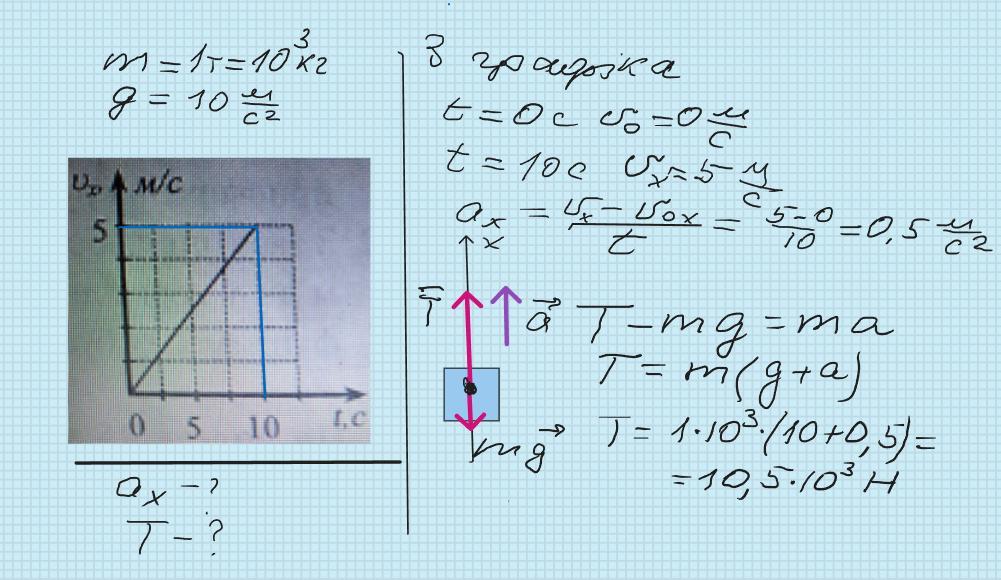 m = 1т = 10³ кг
g = 10 м/с²
υₓ, м/с
5
0 5 10 t, с
aₓ - ?
T - ?
З графіка
t = 0 c υ₀ = 0 м/с
t = 10 c υₓ = 5 м/с
aₓ = (υₓ - υ₀ₓ)/t = (5-0)/10 = 0,5 м/с²
x
T⃗
a⃗
mg⃗
T - mg = ma
T = m(g + a)
T = 1·10³·(10+0,5) =
= 10,5·10³ Н